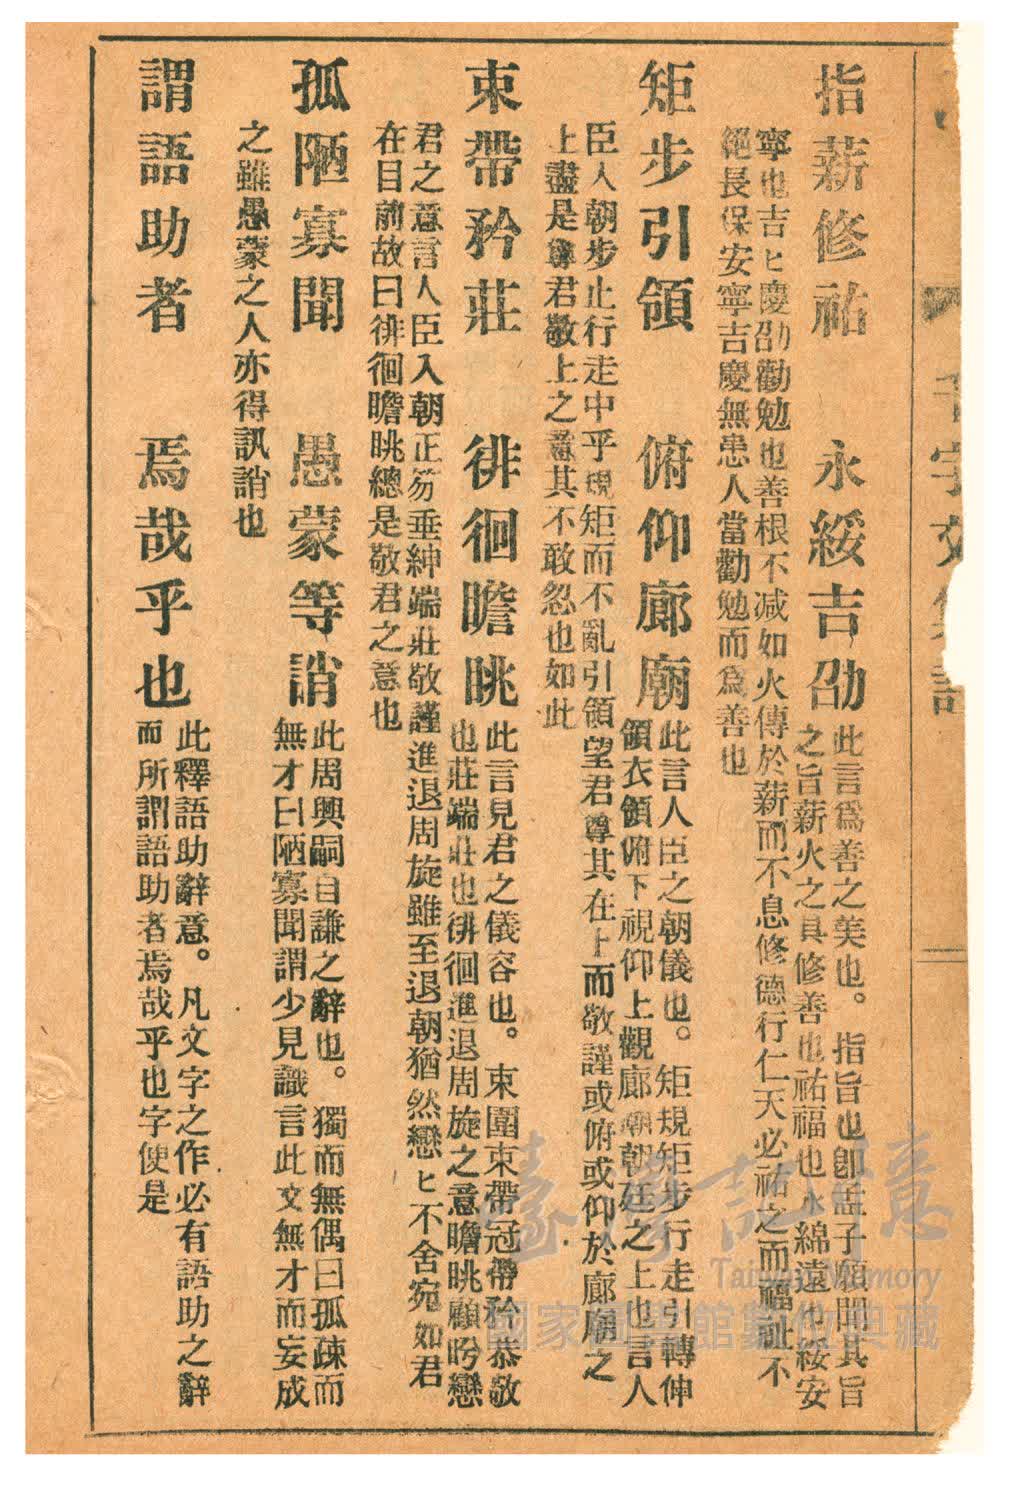 千字文集註
指薪修祐 永綏吉劭
此言爲善之美也。指旨也卽孟子願聞其旨
之旨薪火之具修善也祐福也永綿遠也綏安
寧也吉ヒ慶劭勸勉也善根不減如火傳於薪而不息修德行仁天必祐之而福祉不
絕長保安寧吉慶無患人當勸勉而爲善也
矩步引領 俯仰廊廟
此言人臣之朝儀也。矩規矩步行走引轉伸
領衣領俯下視仰上觀廊廟朝廷之上也言人
臣入朝步止行走中乎規矩而不亂引領望君尊其在上而敬謹或俯或仰於廊廟之
上盡是尊君敬上之意其不敢忽也如此
束帶矜莊 徘徊瞻眺
此言見君之儀容也。束圍束帶冠帶矜恭敬
也莊端莊也徘徊進退周旋之意瞻眺顧盻戀
君之意言人臣入朝正笏垂紳端莊敬謹進退周旋雖至退朝猶然戀ヒ不舍宛如君
在目前故曰徘徊瞻眺總是敬君之意也
孤陋寡聞 愚蒙等誚
此周興嗣自謙之辭也。獨而無偶曰孤疎而
無才曰陋寡聞謂少見識言此文無才而妄成
之雖愚蒙之人亦得訊誚也
謂語助者 焉哉乎也
此釋語助辭意。凡文字之作必有語助之辭
而所謂語助者焉哉乎也字使是
臺灣記憶
Taiwan Memory
國家圖書館數位典藏